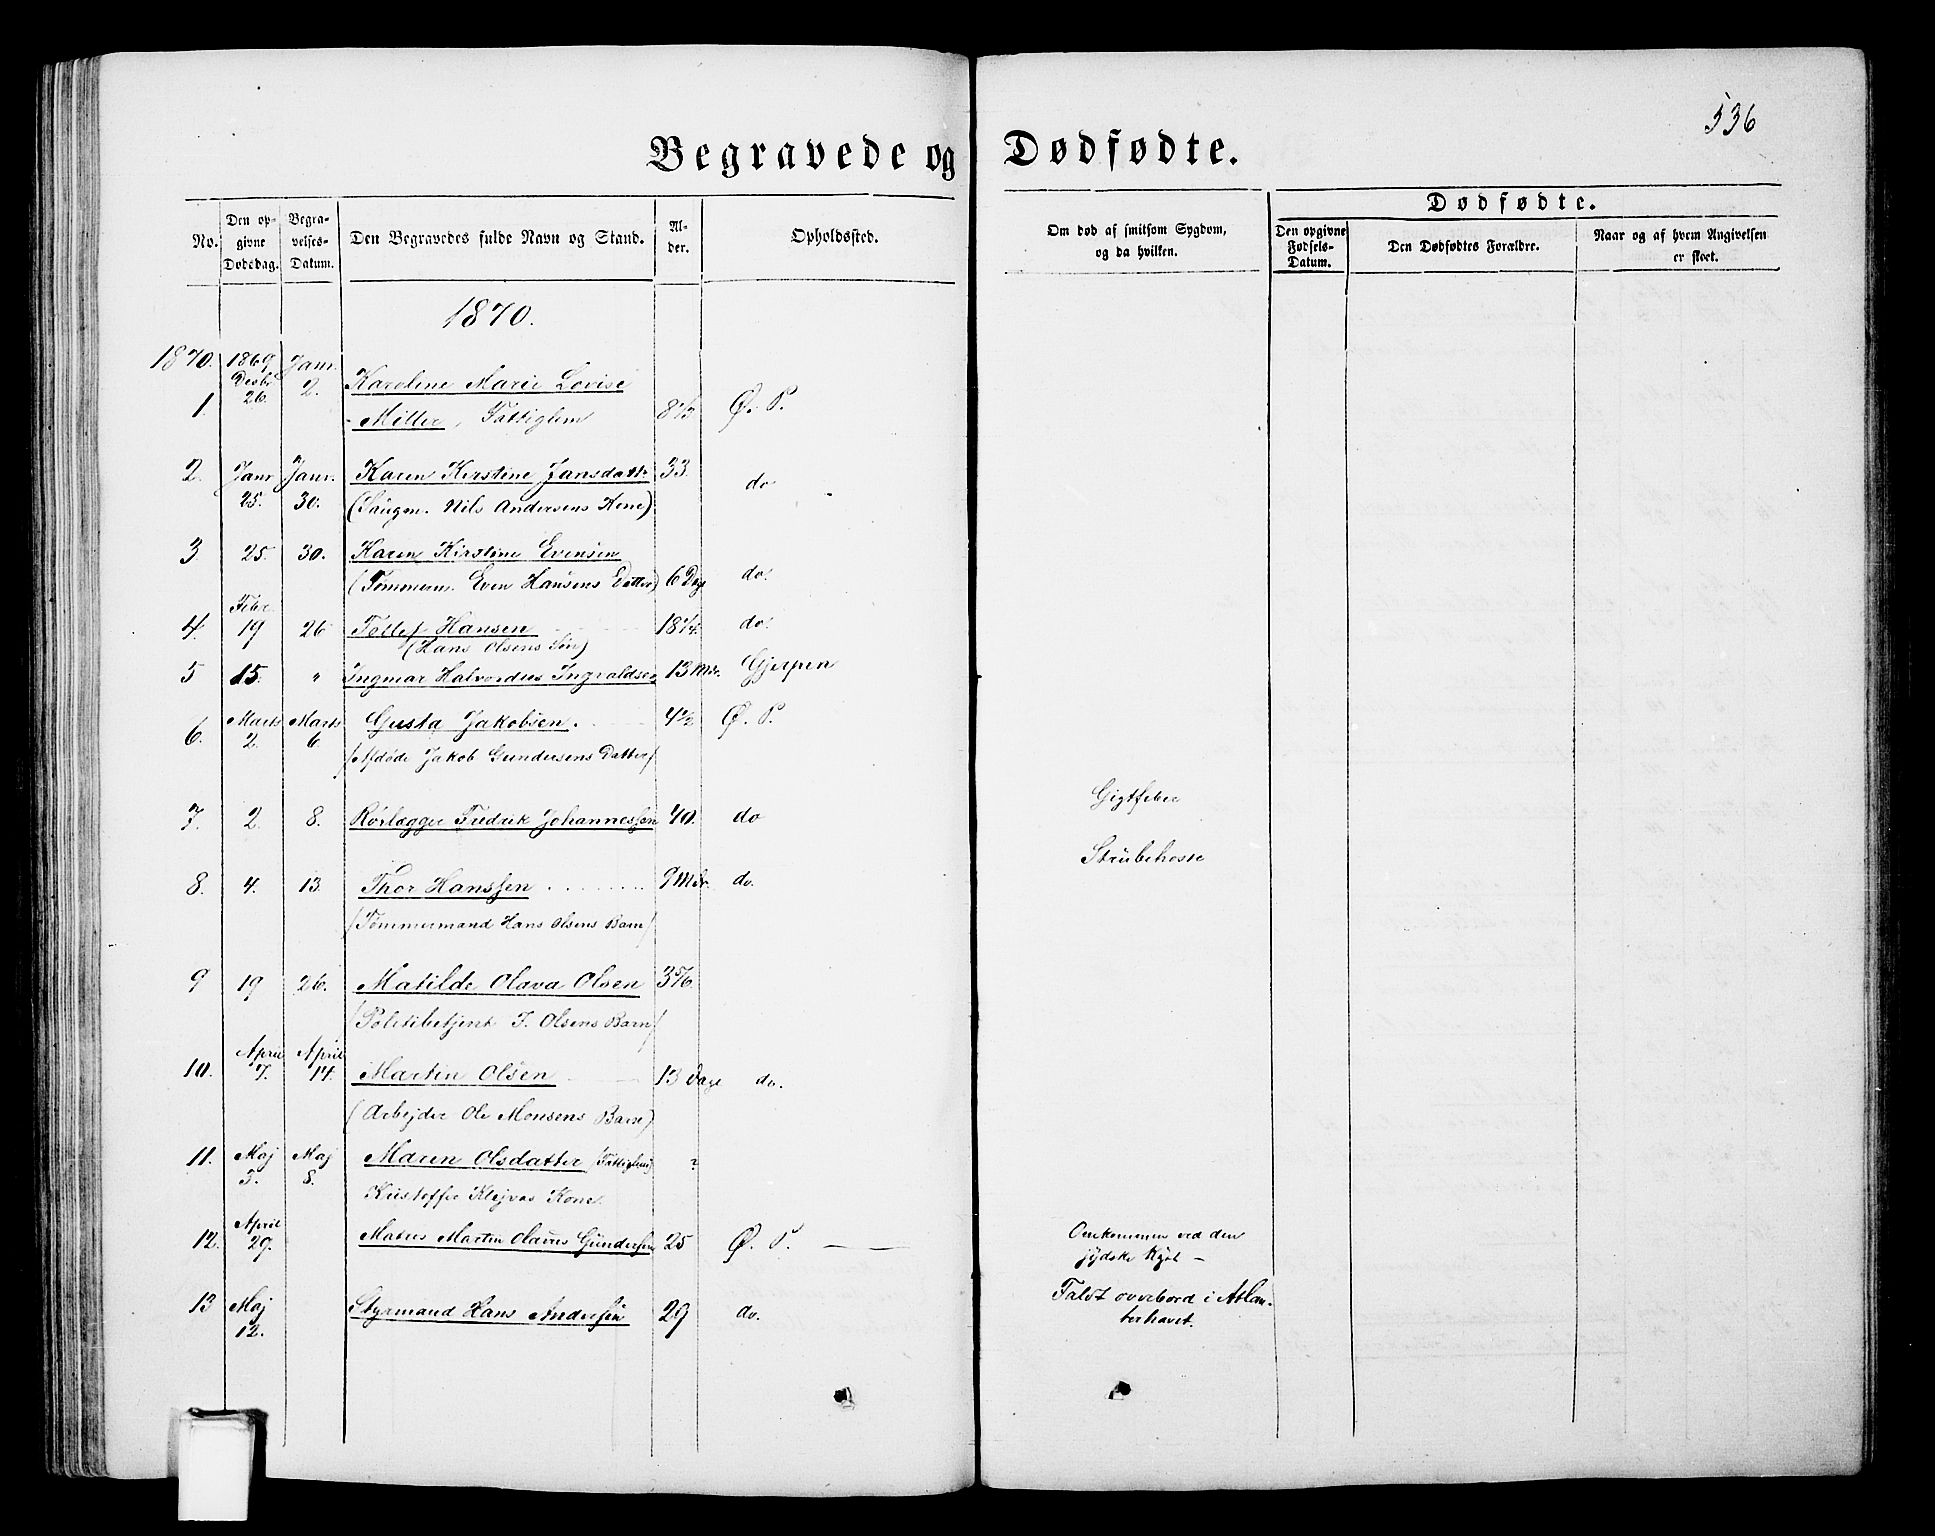 536
Begravede og Dødfødte.
No.
Den opgivne Dødsdag.
Begravelses-Datum.
Den Begravedes fulde Navn og Stand.
Alder.
Opholdssted.
Om død af smitsom Sygdom, og da hvilken.
Dødfødte.
Den opgivne Fødsels-Datum.
Den Dødfødtes Forældre.
Naar og af hvem Angivelsen er skeet.
1870.
1870. 1869 Janr.
1. Desbr 26. 2. Karoline Marie Lovise
Miller, Fattiglem 8 1/2 Ø. P.
2. Janr 25. Janr. 30. Karen Kirstine Jansdatt. 33. do
(Saugm. Nils Andersens Kone)
3 25. 30. Karen Kirstine Evensen
(Tømmerm. Even Hansens Datter) 6 Dage do.
4. Febr. 19 26 Tollef Hansen 18 1/4. do.
(Hans Olsens Søn)
5 15. " Ingmar Halvordius Ingvaldsen 13 Mdr. Gjerpen
6. Marts 2. Marts 6. Gusta Jakobsen. 4 1/2 Ø. P.
/Afdøde Jakob Gundersens Datter/
7. 2. 8. Rørlægger Fredrik Johannessen 40. do Gigtfeber
8. 4. 13. Thor Hanssen 9 Mdr. do. Strubehoste
/Tømmermand Hans Olsens Barn/
9 19 26. Matilde Olava Olsen 3 5/6.
/Politibetjent J. Olsens Barn/
10. April 7. April 14. Martin Olsen 13 Dage do.
(Arbejder Ole Monsens Barn)
11. Maj 3. Maj 8. Maren Olsdatter /Fattiglem/ ?
Kristoffer Klejvas Kone.
12. April 29. Matius Martin Olavus Gundersen 25 Ø. P. Omkommen ved den
jydske Kyst
13 Maj 12. Styrmand Hans Andersen 29 do. Faldt overbord i Atlan-
terhavet.